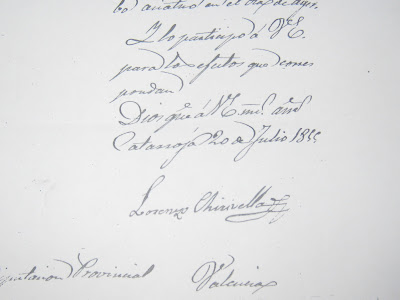 lo anterior en el dia de ayer.
Y lo participo á V.E.
para los efectos que corres
pondan
Dios gue á V.E. ms. añs.
Catarroja 20 de Julio 18
Lorenzo Chirivella
putacion Provincial Valencia